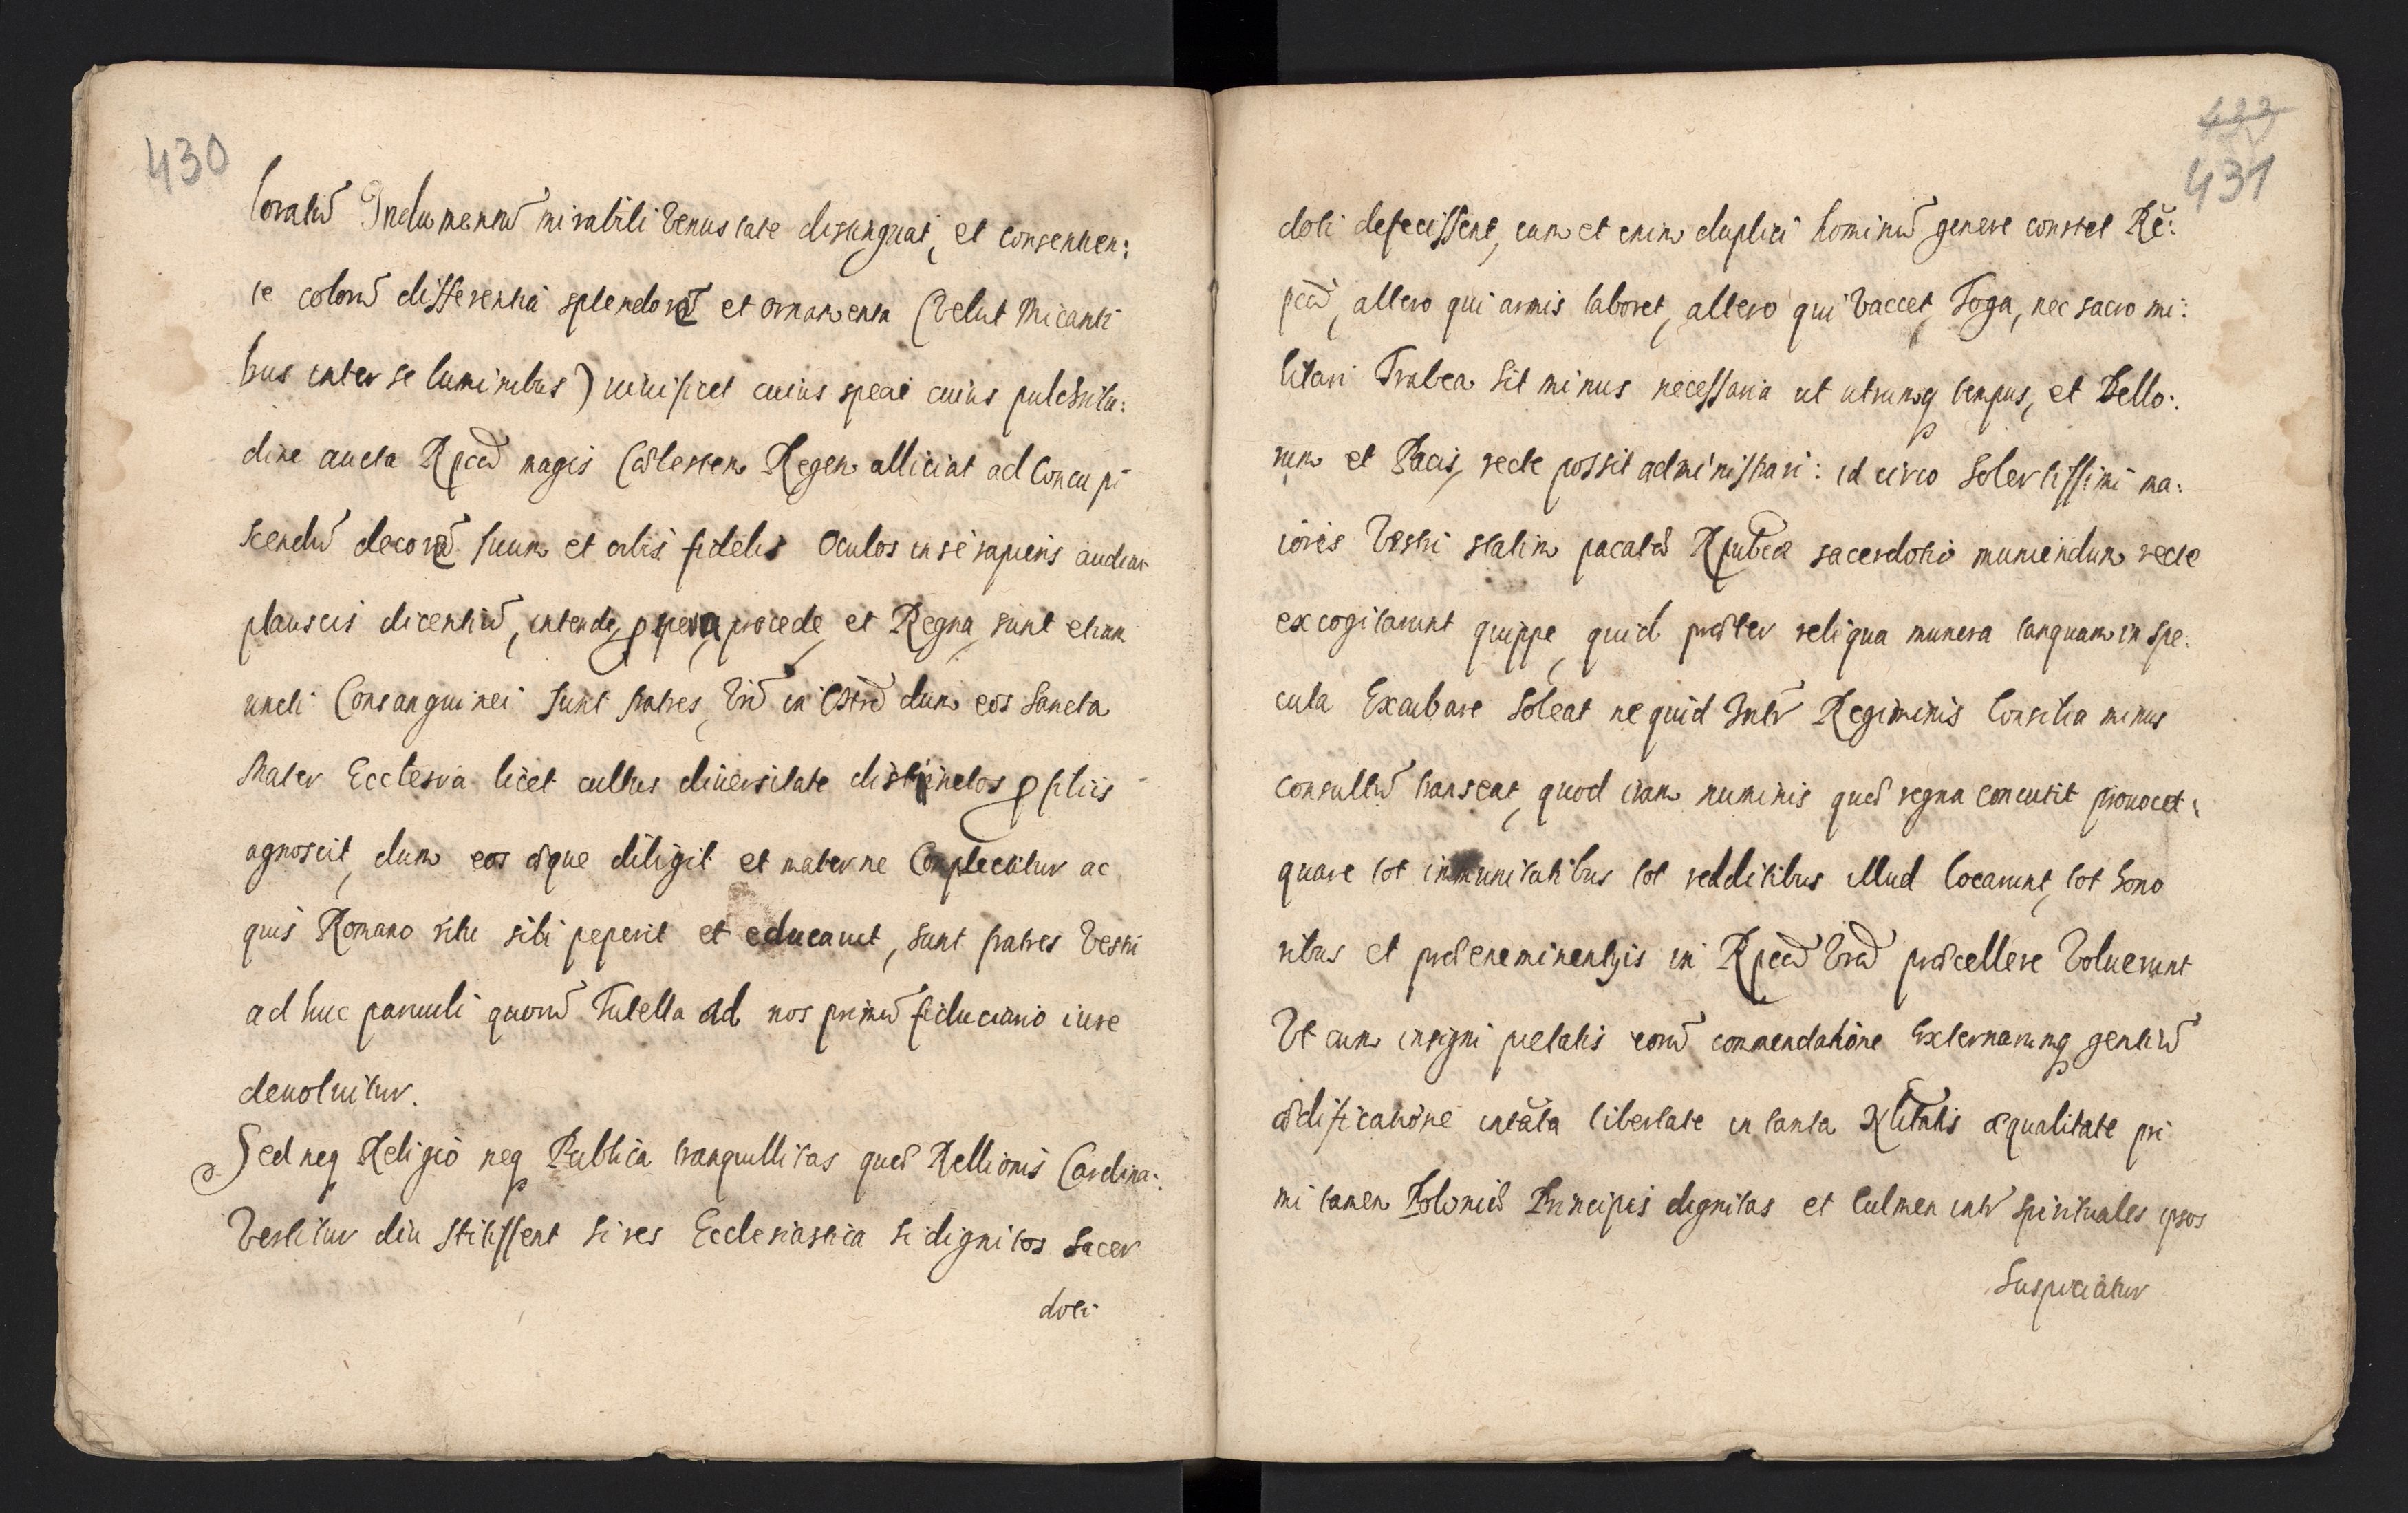 430
loratũ Indumentũ mirabili Venustate distinguat, et consentien:
te colorũ differentia splendorẽ et ornamenta (Velut Micanti
bus inter se luminibus) viuificet cuius specie cuius pulchritu:
dine aucta Rpca magis Cælestem Regem alliciat ad Concupi
scendũ decorẽ suum et orbis fidelis Oculos in se rapiens audiat
plausus dicentiũ, intende, prospera, procede, et Regna, sunt etiam
uncti Consanguinei sunt fratres Vrĩ in Xstõ dum eos Sancta
Mater Ecclesia licet cultus diuersitate distinctos p filiis
agnoscit, dum eos æque diligit et materne Complectitur ac
quos Romano ritu sibi peperit et educauit, sunt fratres Vestri
ad huc paruuli quorũ Tutella ad nos primũ fiduciario iure
deuoluitur.
Sed neq Religio neq Publica tranquillitas quæ Rellionis Cardina:
Vertitur diu stitissent si res Ecclesiastica si dignitas Sacer
doti
433
431
doti defecissent, cum et enim duplici hominũ genere constet Rẽ:
pca, altero qui armis laboret, altero qui Vaccet, Toga, nec sacro mi:
litari Trabea sit minus necessaria ut utrumq tempus, et Bello:
rum et Pacis, recte possit administrari: id circo Solertissimi ma:
iores Vestri statim pacatã Rpublcæ sacerdotio muniendum recte
excogitarunt quippe, quid præter reliqua munera tanquam in spe:
cula Excubare Soleat ne quid Intr Regiminis Consilia minus
consultũ transeat, quod iram numinis quæ regna concutit prouocet:
quare tot immunitatibus tot redditibus illud locarunt, tot hono
ribus et præeneminentijs in Rpca Vra præcellere Voluerunt
Vt cum insigni pietatis eorũ commendatione Externarumq gentiũ
ædificatione in tãta libertate in tanta Nlitatis æqualitate pri
mi tamen Poloniæ Principis dignitas et Culmen intr Spirituales ipsos
Suspiciatur